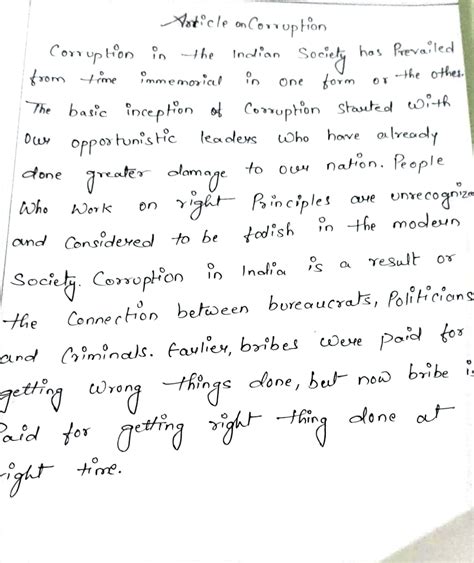 Article on Corruption
Corruption in the Indian Society has Prevailed
from time immemorial in one form or the other.
The basic inception of Corruption started with
Our opportunistic leaders who have already
done greater damage to our nation. People
who work on right Principles are unrecognize
and Considered to be foolish in the modern
Society. Corruption in India is a result or
the Connection between bureaucrats, Politicians
and Criminals. Earlier, bribes were paid for
getting wrong things done, but now bribe is
Paid for getting right thing done at
right time.